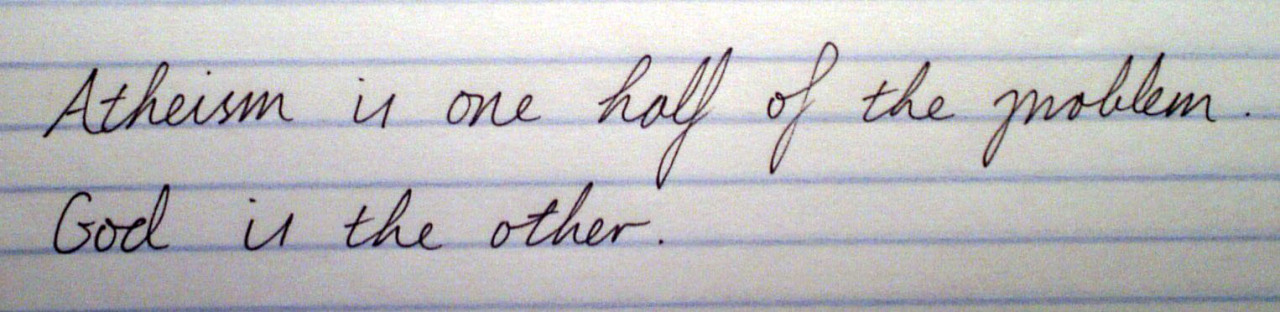 Atheism is one half of the problem.
God is the other.